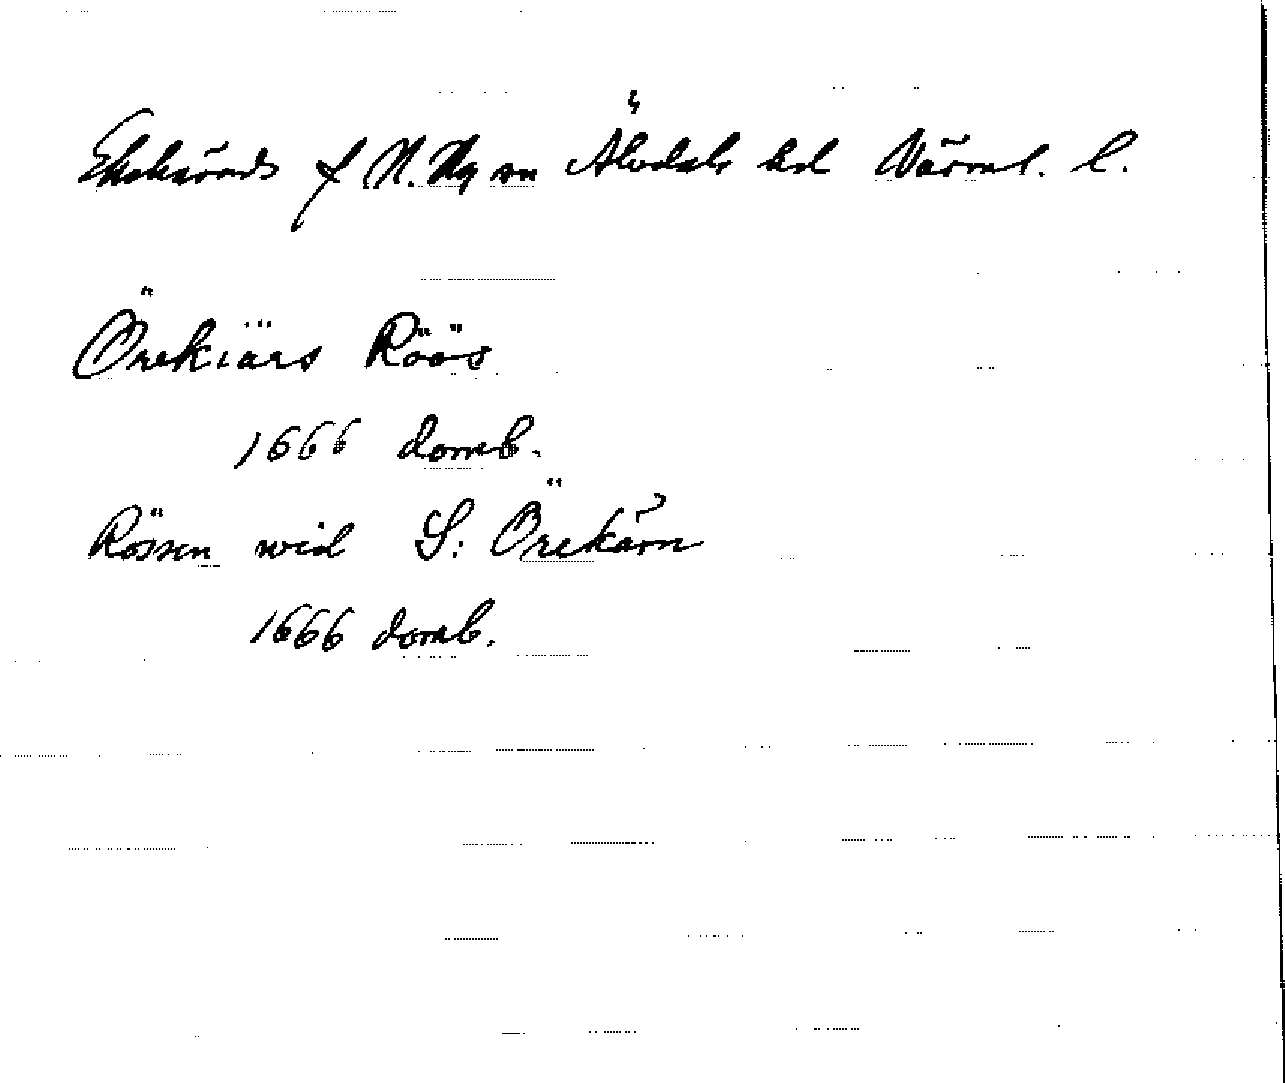 f N. Ny sn Älvdals hd Värml. l.
Örekiärs Röös
1666 domb.
Rössen wid S: Örekärn
1666 domb.